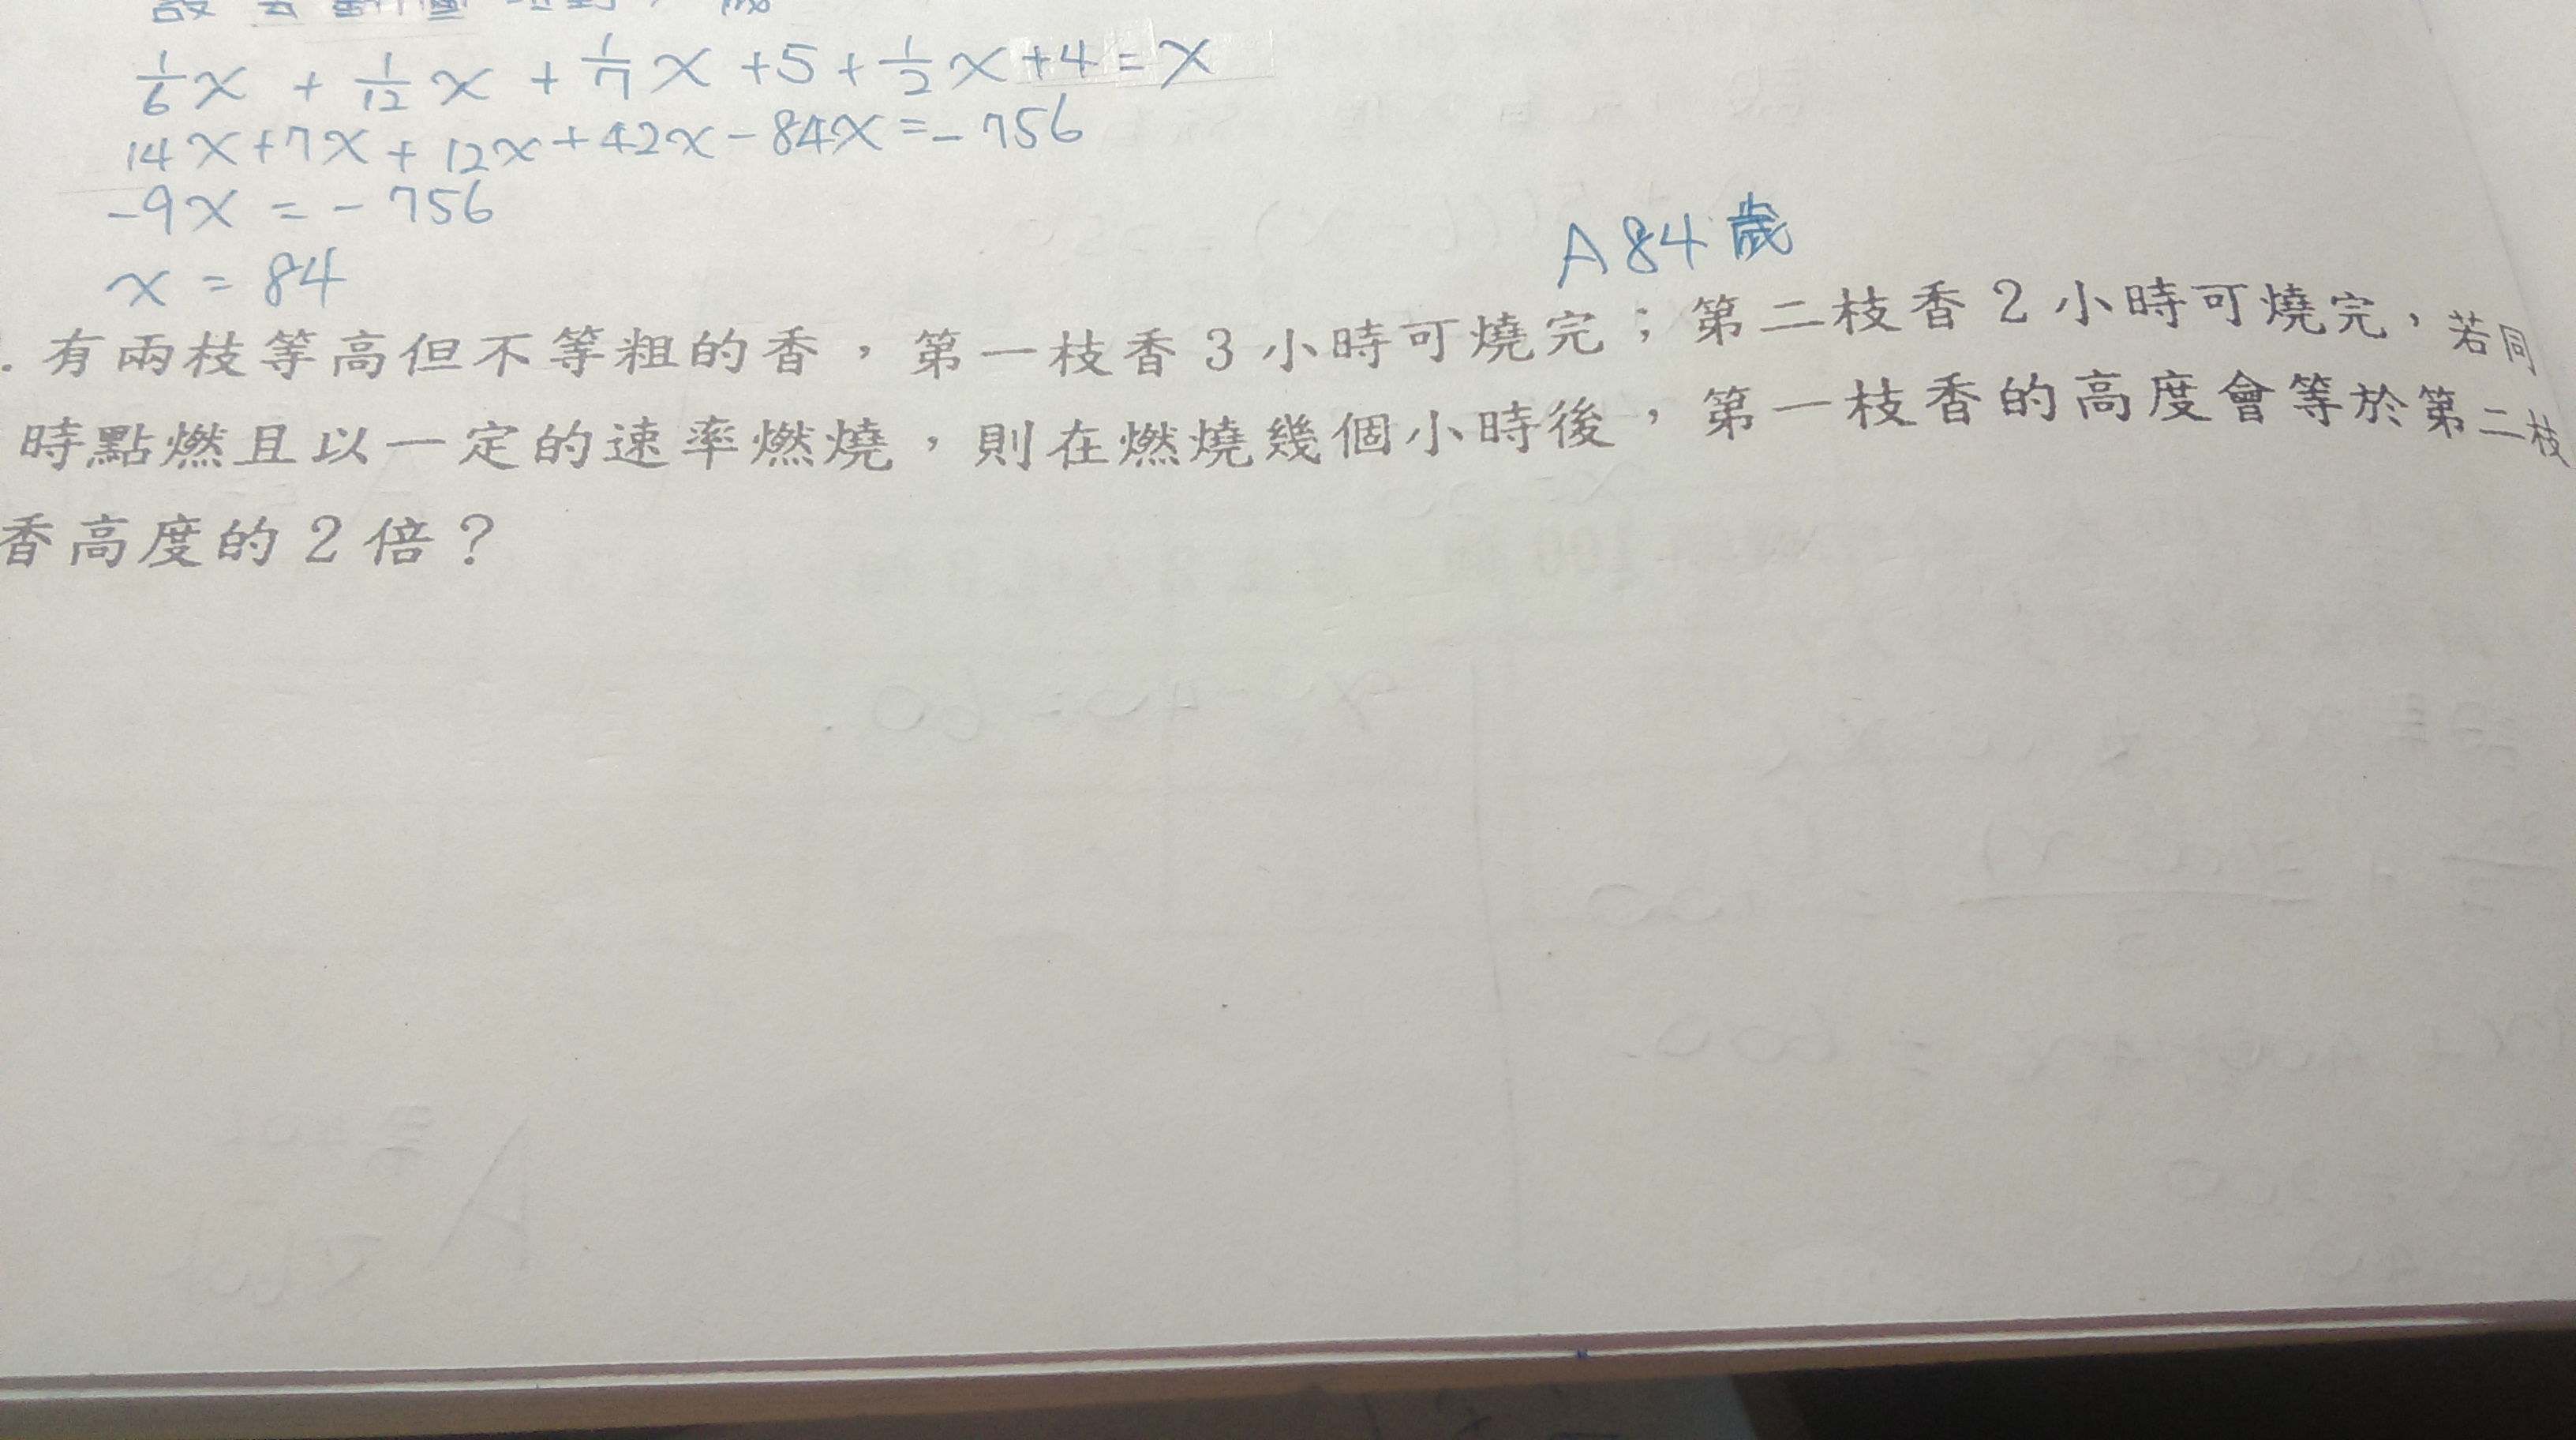 1/6 x + 1/12 x + 1/7 x + 5 + 1/2 x + 4 = x
14x + 7x + 12x + 42x - 84x = - 756
-9x = - 756
x = 84
A 84 歲
. 有兩枝等高但不等粗的香，第一枝香 3 小時可燒完；第二枝香 2 小時可燒完，若同
時點燃且以一定的速率燃燒，則在燃燒幾個小時後，第一枝香的高度會等於第二枝
香高度的 2 倍？